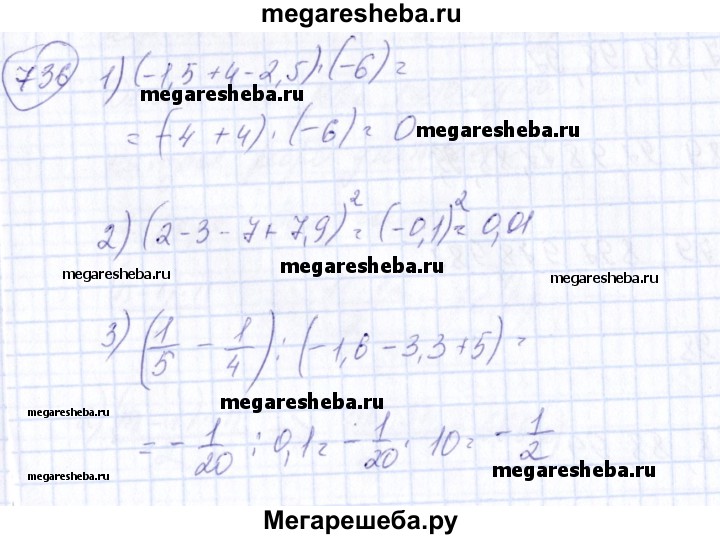 megaresheba.ru
736 1) (-1,5 + 4 - 2,5) · (-6) =
megaresheba.ru
= (-4 + 4) · (-6) = 0 megaresheba.ru
2) (2 - 3 - 7 + 7,9)² = (-0,1)² = 0,01
megaresheba.ru megaresheba.ru
3) (1/5 - 1/4) : (-1,6 - 3,3 + 5) =
megaresheba.ru megaresheba.ru
= - 1/20 : 0,1 = - 1/20 · 10 = - 1/2
megaresheba.ru megaresheba.ru
Мегарешеба.ру